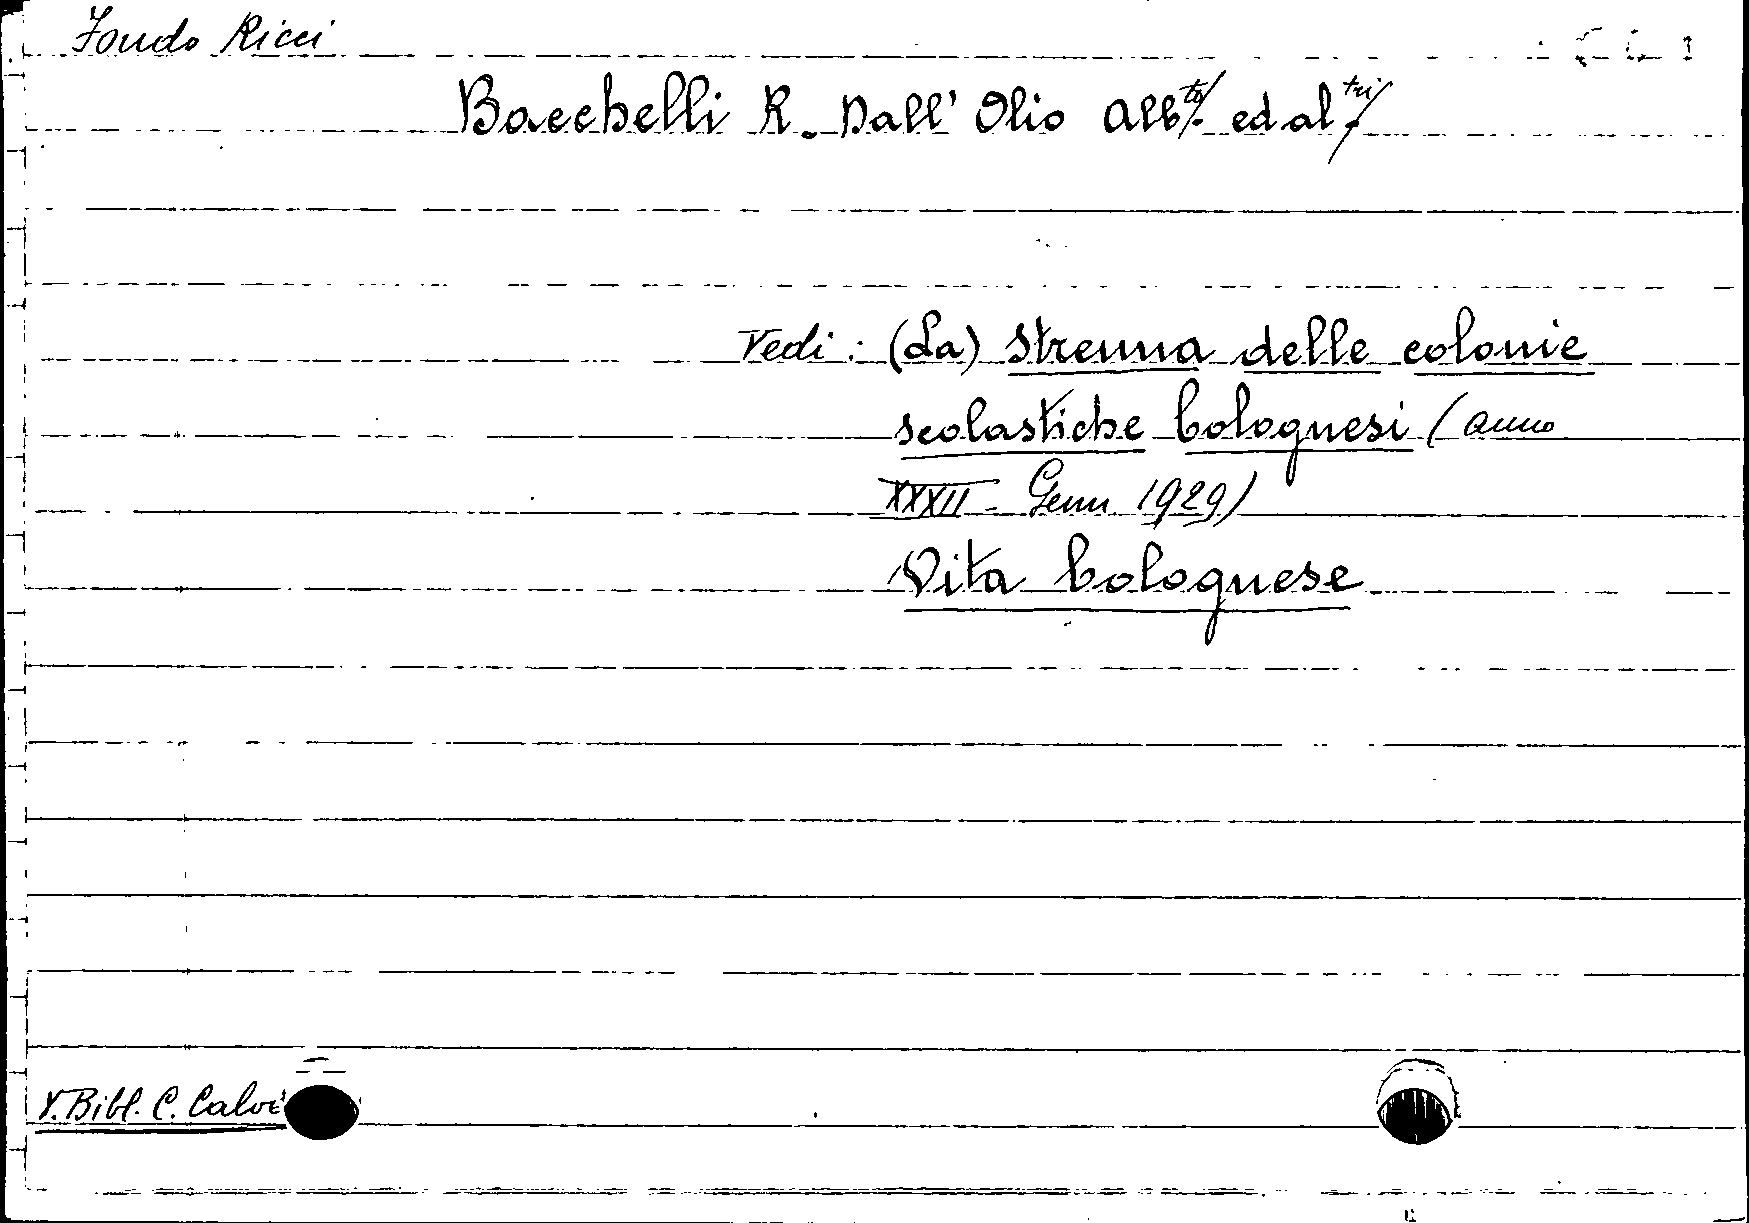 Fondo Ricci
Bacchelli R. Dall' Olio Alb.to ed al.tri
Vedi: (La) Strenna delle colonie
scolastiche bolognesi (anno
XXXII - Genn 1929)
Vita bolognese
V. Bibl. C. Calvi